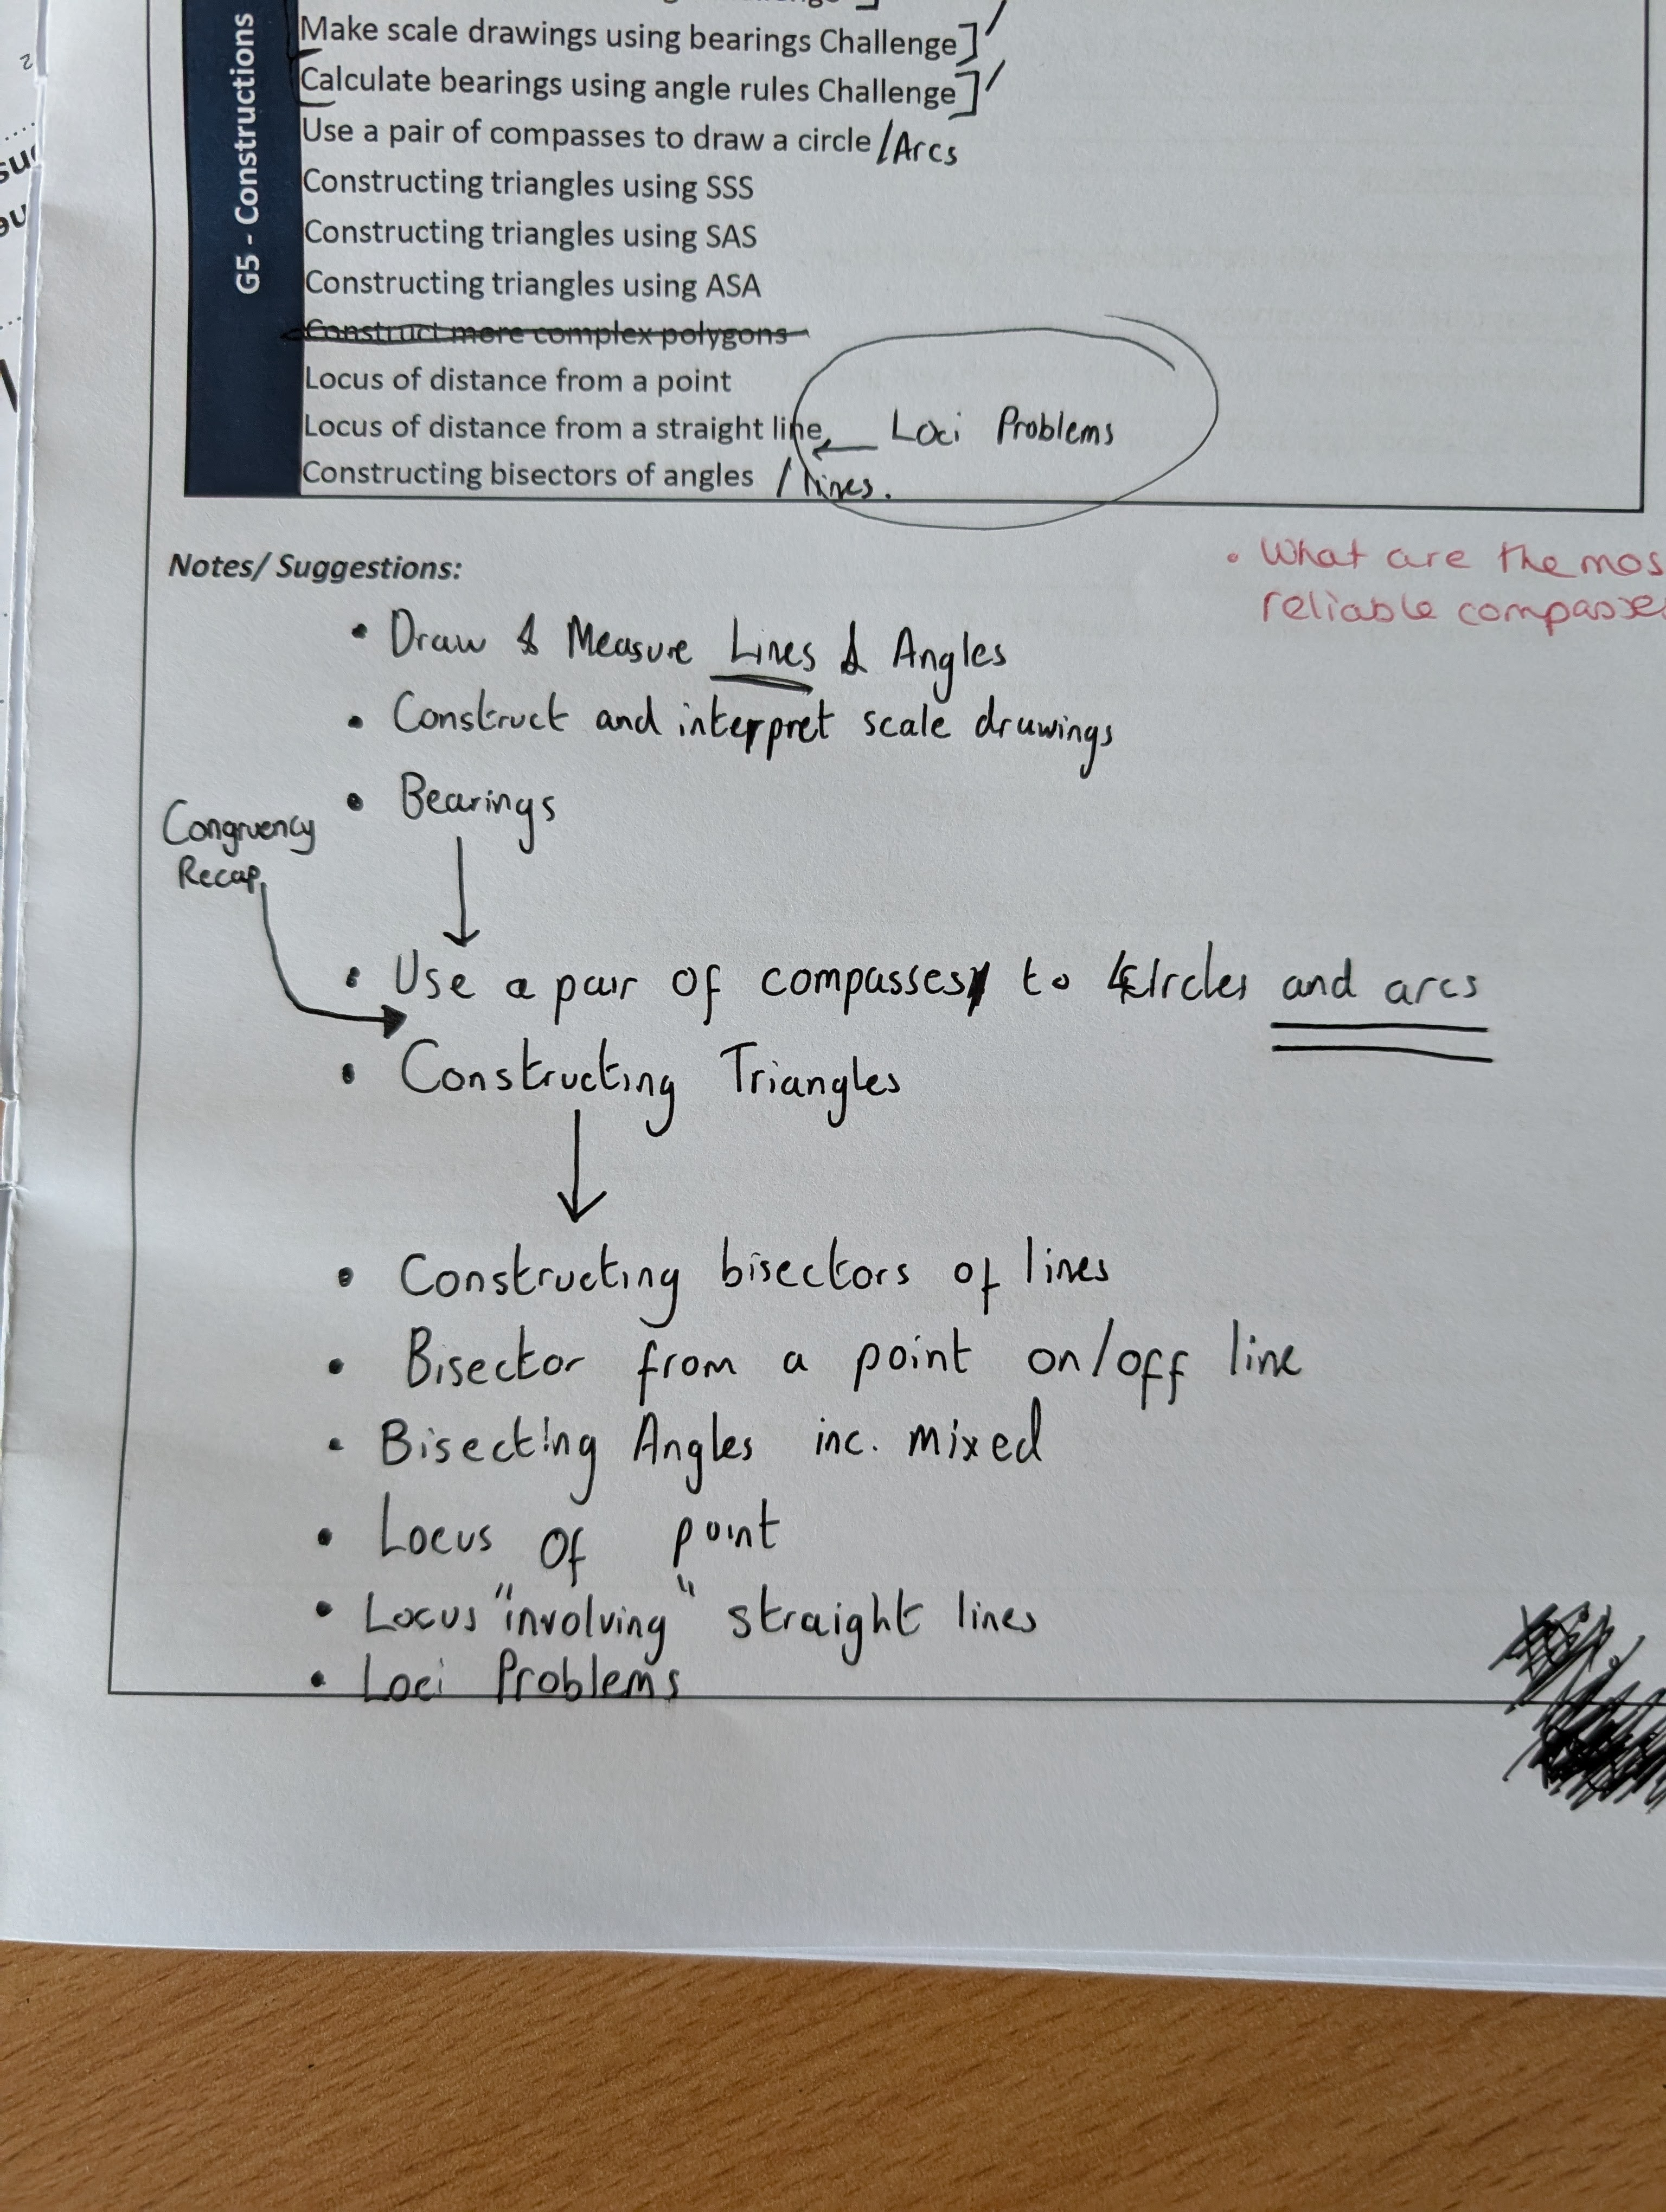 Make scale drawings using bearings Challenge
Calculate bearings using angle rules Challenge
Use a pair of compasses to draw a circle /Arcs
Constructing triangles using SSS
Constructing triangles using SAS
Constructing triangles using ASA
Construct more complex polygons
Locus of distance from a point
Locus of distance from a straight line ← Loci Problems
Constructing bisectors of angles / lines.
G5 - Constructions
Notes/ Suggestions:
• What are the mos
reliable compasse
• Draw & Measure Lines & Angles
• Construct and interpret scale drawings
• Bearings
Congruency
Recap
• Use a pair of compasses to circles and arcs
• Constructing Triangles
• Constructing bisectors of lines
• Bisector from a point on/off line
• Bisecting Angles inc. mixed
• Locus of point
• Locus "involving" straight lines
• Loci Problems